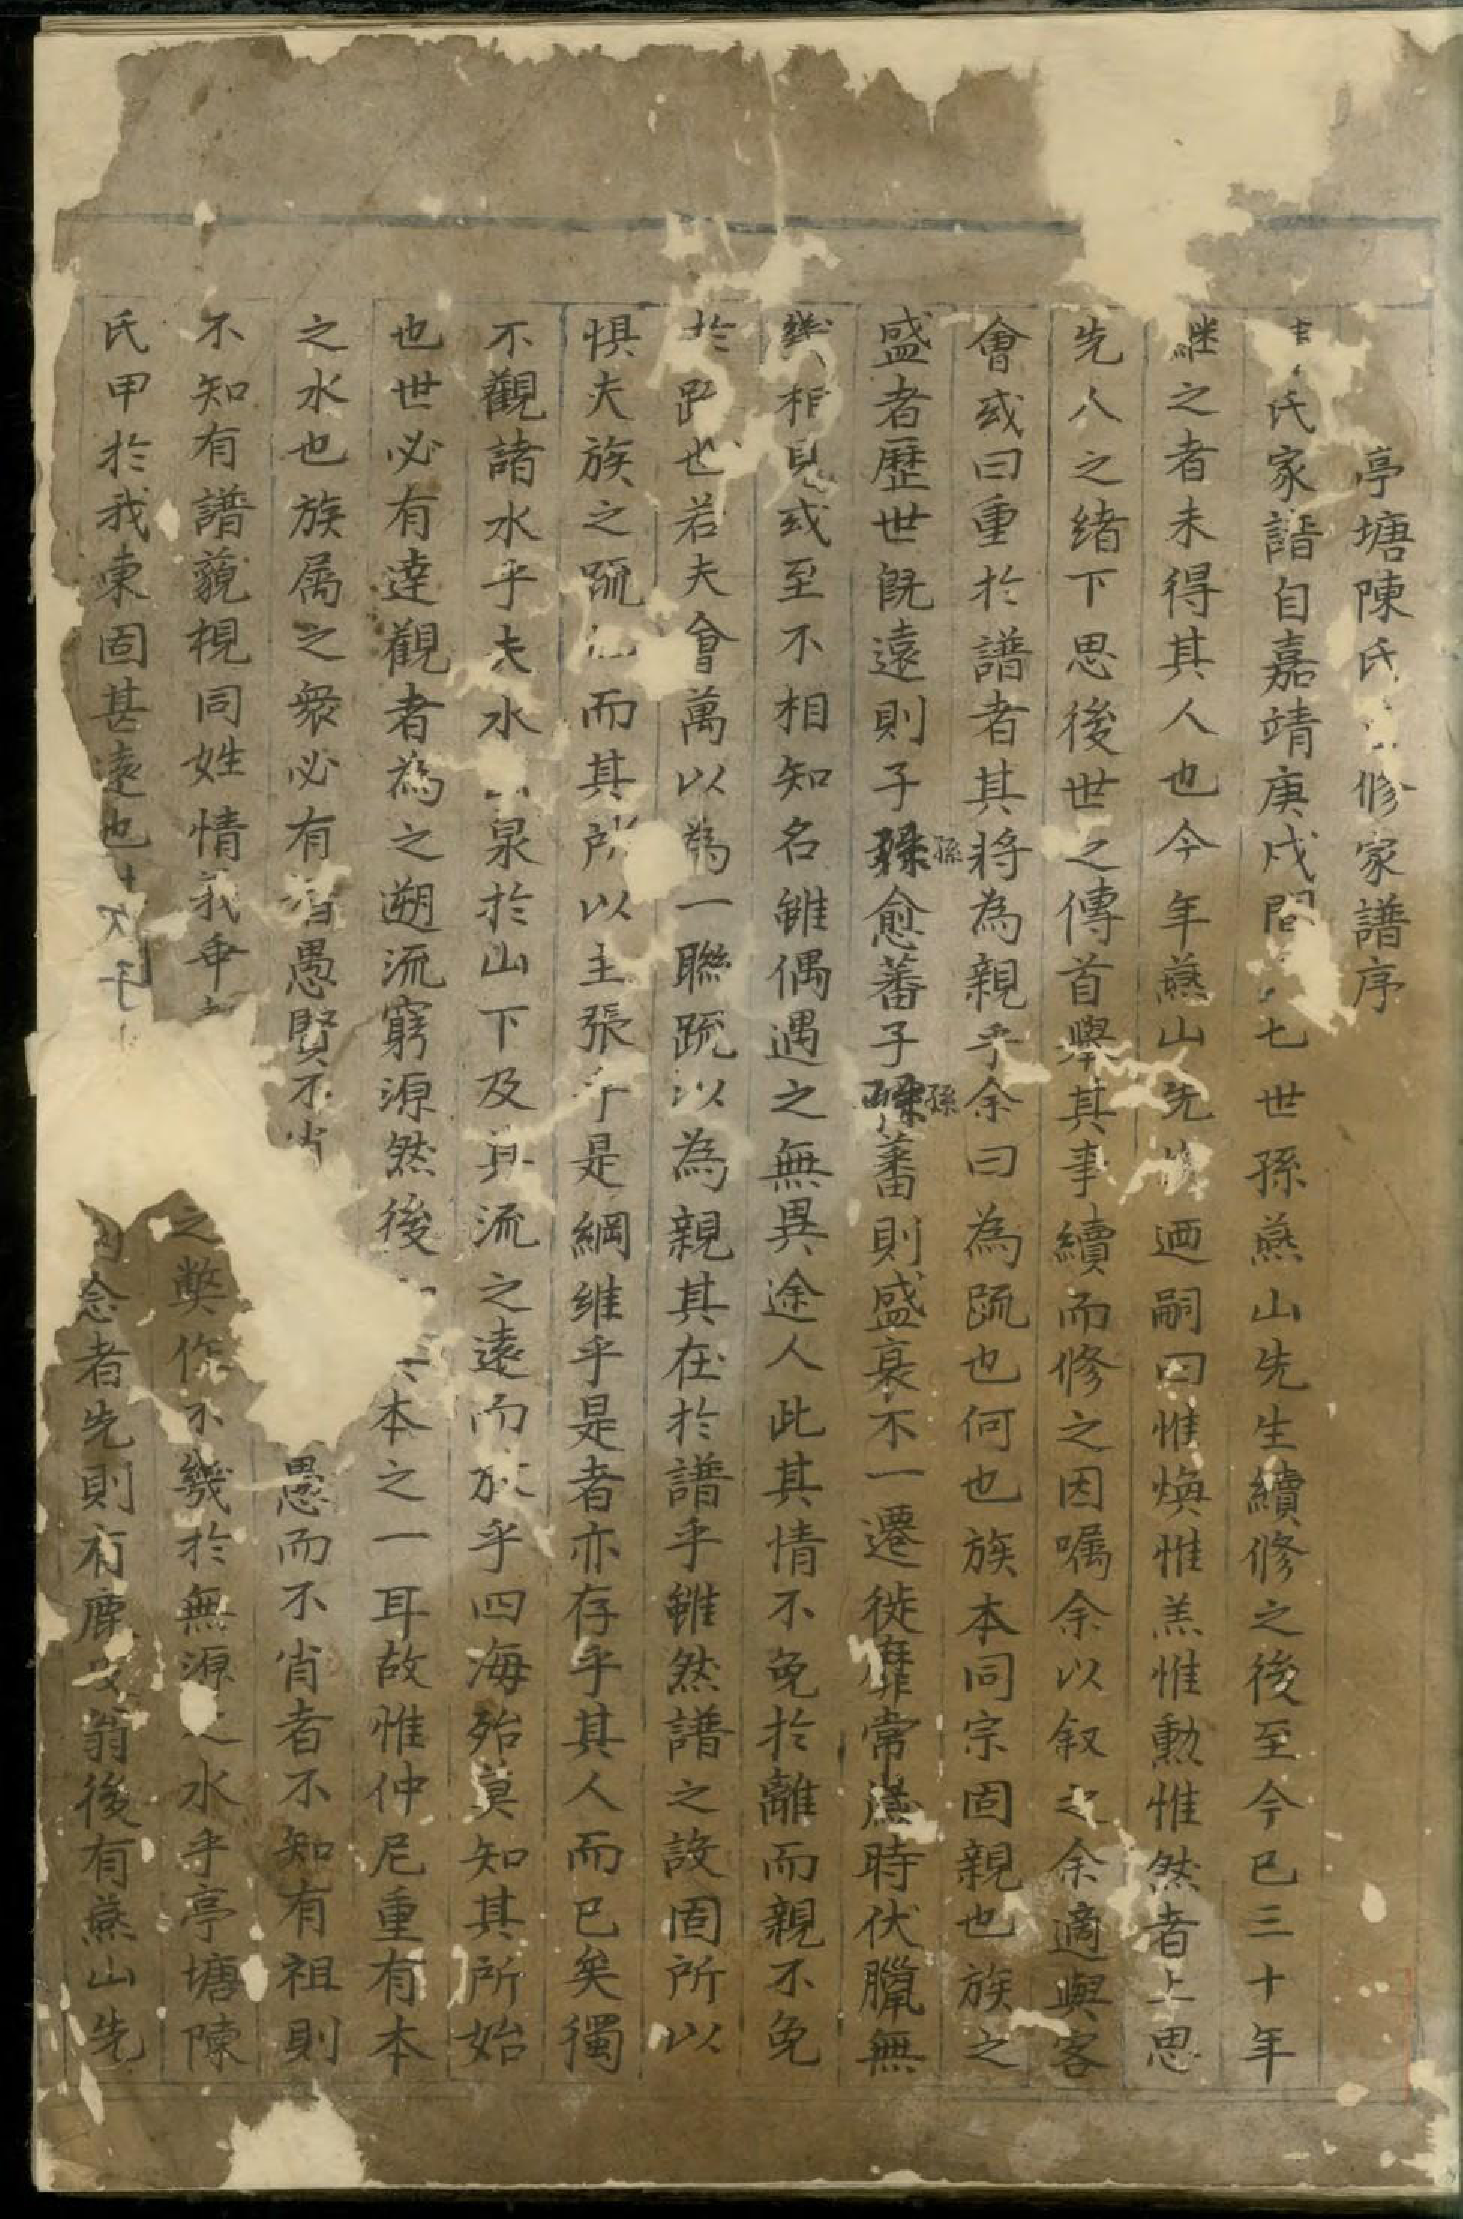 亭塘陳氏修家譜序
氏家譜自嘉靖庚戌間七世孫燕山先生續修之後至今已三十年
繼之者未得其人也今年燕山先生廼嗣曰惟煥惟羔惟勳惟然者上思
先人之緒下思後世之傳首舉其事續而修之因嘱余以叙之余適與客
會或曰重於譜者其將為親乎余曰為疏也何也族本同宗固親也族之
盛者歷世既遠則子孫愈蕃子孫蕃則盛衰不一遷徙靡常歲時伏臘無
幾相見或至不相知名雖偶遇之無異途人此其情不免於離而親不免
於踈也若夫會萬以為一聯疏以為親其在於譜乎雖然譜之設固所以
惧夫族之疏而其所以主張乎是綱維乎是者亦存乎其人而已矣獨
不觀諸水乎夫水泉於山下及其流之遠而放乎四海殆莫知其所始
也世必有達觀者為之遡流窮源然後本之一耳故惟仲尼重有本
之水也族属之衆必有智愚賢不肖愚而不肖者不知有祖則
不知有譜藐視同姓情之弊作不幾於無源之水乎亭塘陳
氏甲於我東固甚遠也念者先則有翁後有燕山先